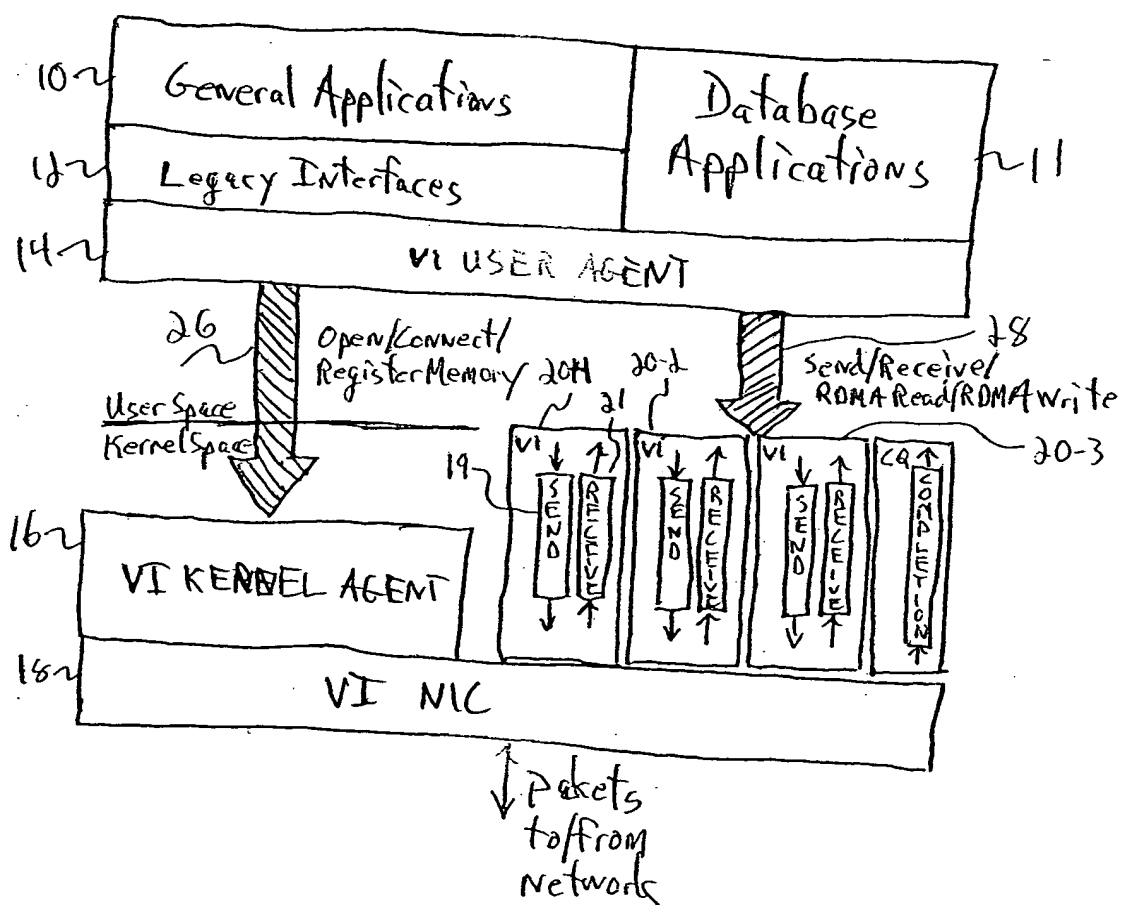 10
General Applications
Database
Applications
11
12
Legacy Interfaces
14
VI USER AGENT
26
Open/Connect/
Register Memory
28
Send/Receive/
RDMA Read/RDMA Write
User Space
Kernel Space
20-1
20-2
21
20-3
19
VI
SEND
RECEIVE
VI
SEND
RECEIVE
VI
SEND
RECEIVE
CQ
COMPLETION
16
VI KERNEL AGENT
18
VI NIC
Pakets
to/from
Network